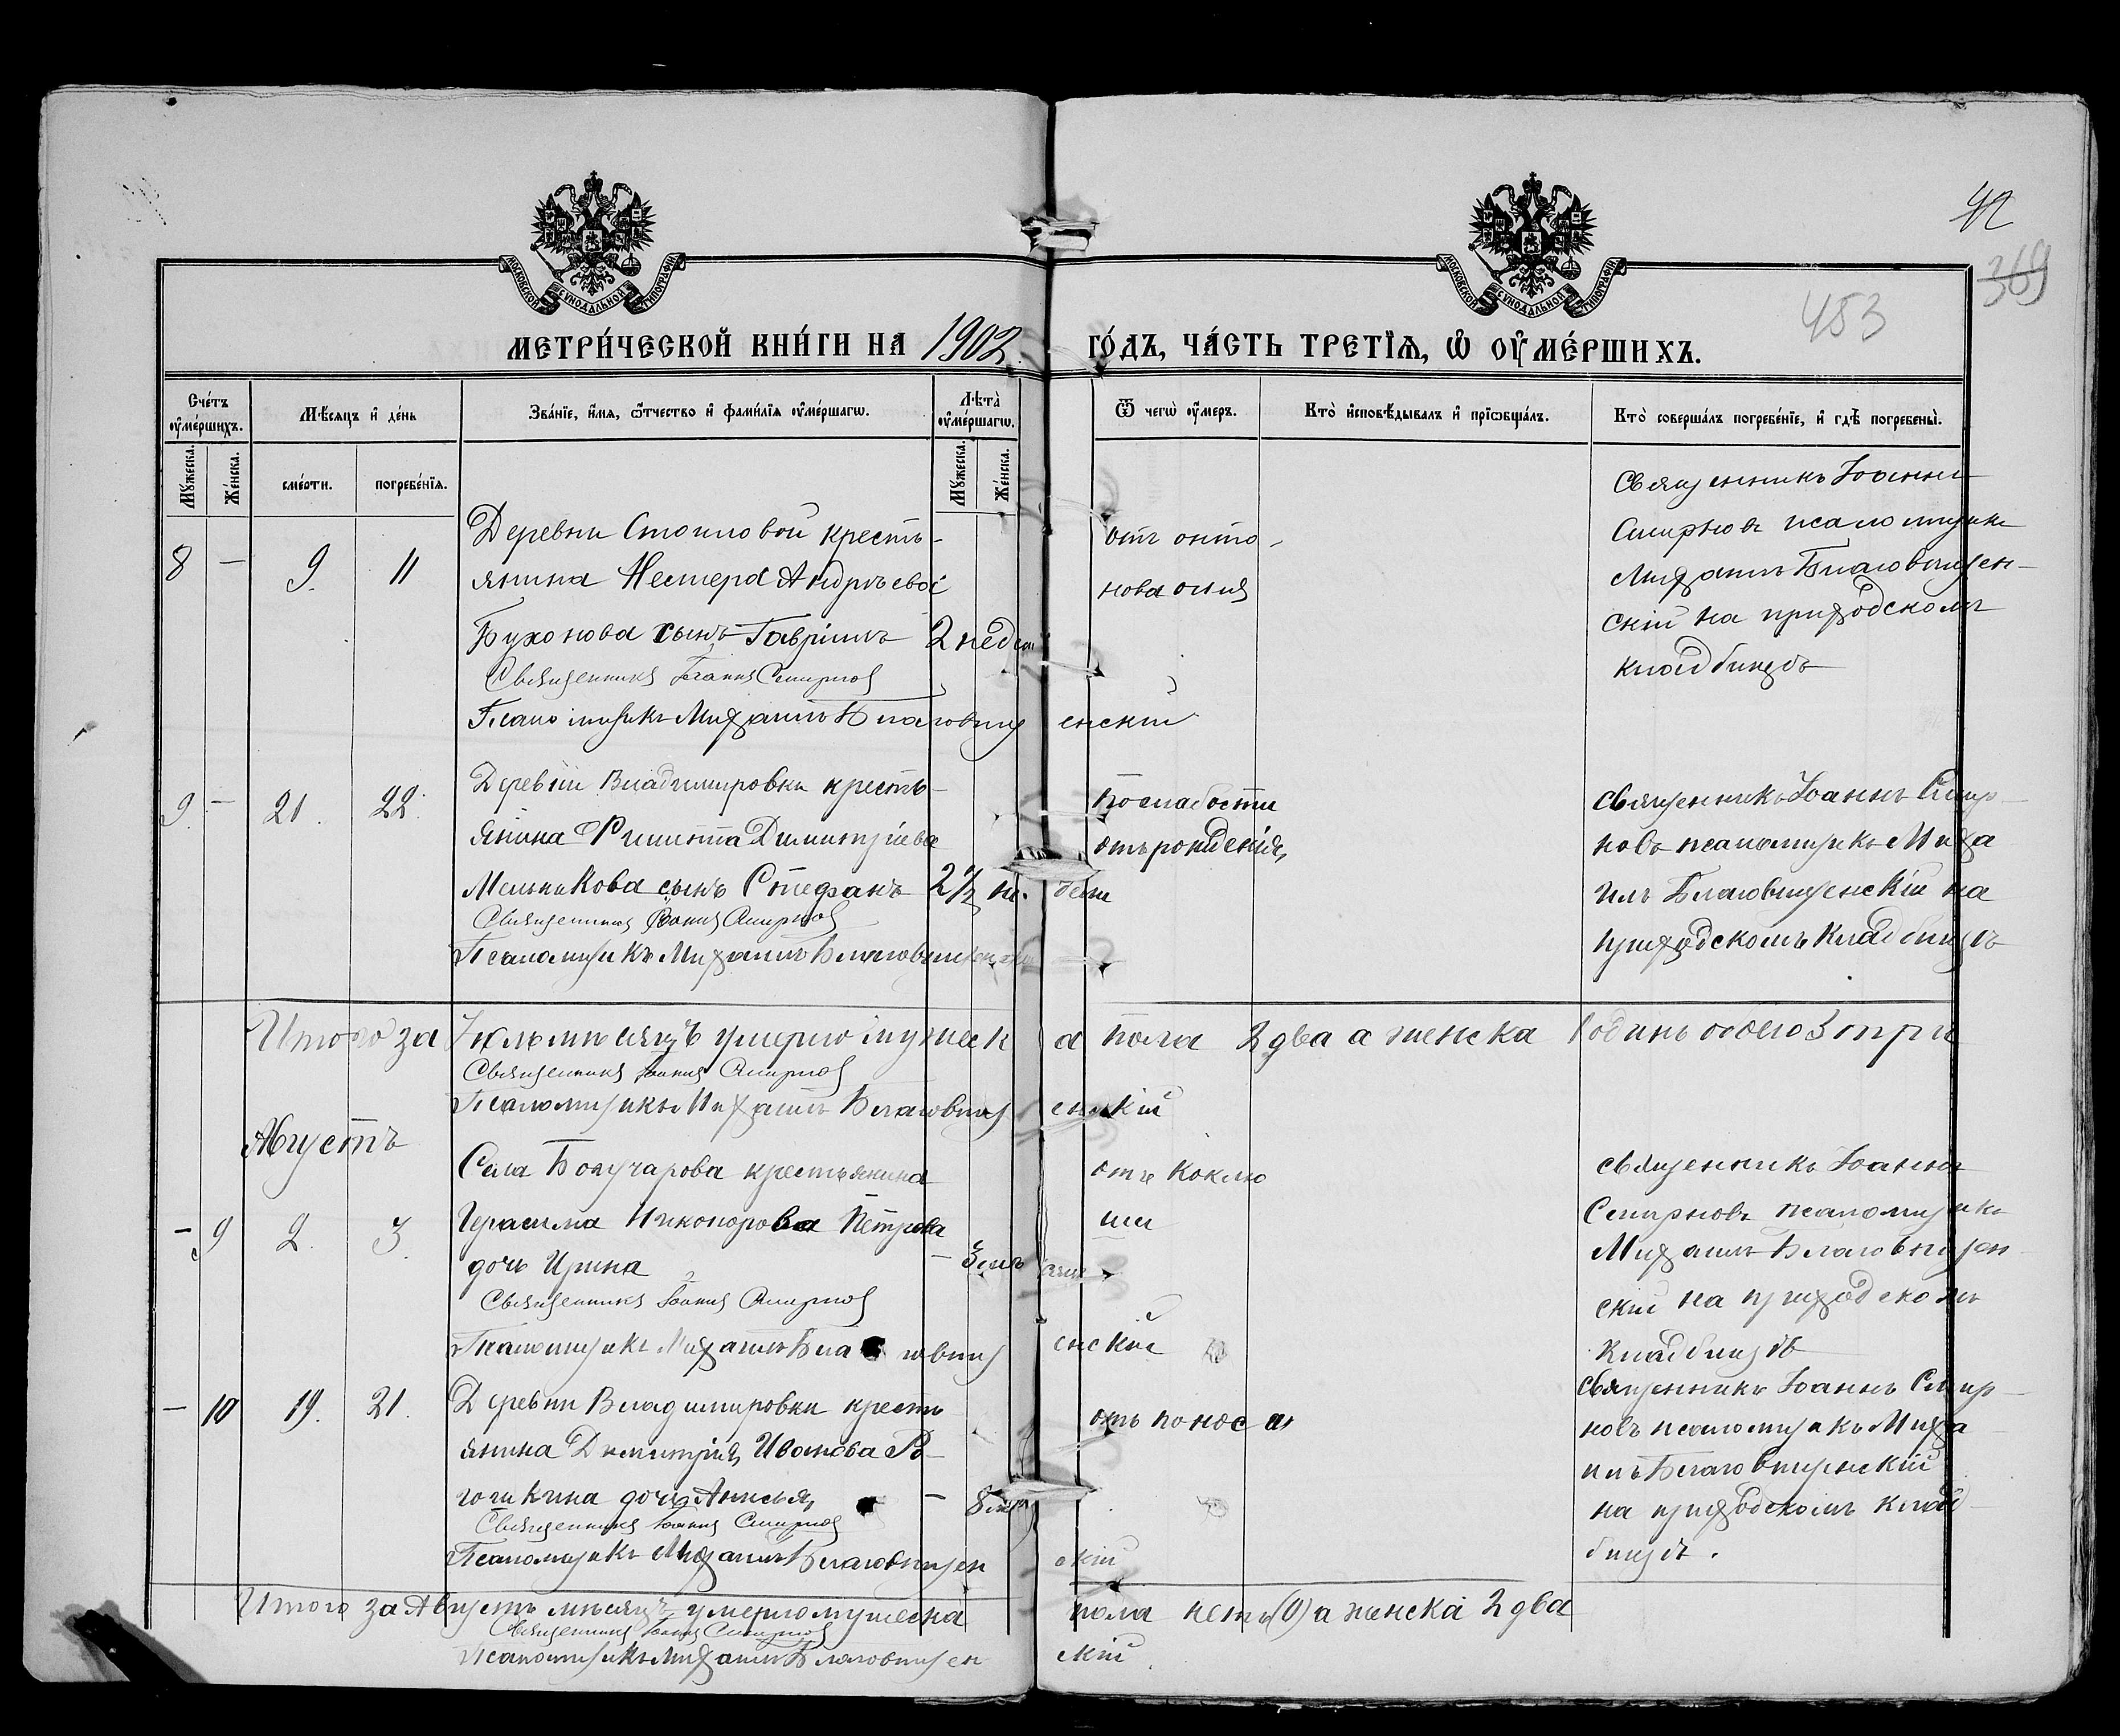 42
369
453
МОСКОВСКОЙ СѴНОДАЛЬНОЙ ТИПОГРАФІИ
МОСКОВСКОЙ СѴНОДАЛЬНОЙ ТИПОГРАФІИ
МЕТРИ́ЧЕСКОЙ КНИ́ГИ НА 1902 ГО́ДЪ, ЧА́СТЬ ТРЕТІ́Ѧ, Ѡ҆ ОУ҆МЕ́РШИХЪ.
Сче́тъ оу҆ме́ршихъ.
Мꙋжеска.
Же́нска.
Мѣ́сяцъ и҆ де́нь
сме́рти.
погребе́нїѧ.
Зва́нїе, и҆́мѧ, ѻ҆́тчество и҆ фами́лїѧ оу҆ме́ршагѡ.
Лѣ́та̀ оу҆ме́ршагѡ.
Мꙋжеска.
Же́нска.
Ѿ чегѡ̀ оу҆́меръ.
Кто̀ и҆сповѣ́дывалъ и҆ прїѡбща́лъ.
Кто̀ соверша́лъ погребе́нїе, и҆ гдѣ̀ погребены̀.
8 — 9. 11
Деревни Стоиловой кресть-
янина Нестера Андрѣева
Бухонова сынъ Гавріилъ 2 недѣли
Священникъ Іоаннъ Смирновъ
Псаломщикъ Михаилъ Благовѣщенскій
отъ онто-
нова огня
Священникъ Іоаннъ
Смирновъ псаломщикъ
Михаилъ Благовѣщен-
скій на приходскомъ
кладбищѣ
9. — 21. 22.
Деревни Владимировки кресть-
янина Филиппа Димитріева
Мельникова сынъ Стефанъ 2½ не. дели
Священникъ Іоаннъ Смирновъ
Псаломщикъ Михаилъ Благовѣщенскій
по слабости
отъ рожденія
священникъ Іоаннъ Смир-
новъ псаломщикъ Миха
илъ Благовѣщенскій на
приходскомъ кладбищѣ
Итого за Іюль мѣсяцъ умерло мужеска пола 2 два а женска 1 одинъ обоего 3 три
Священникъ Іоаннъ Смирновъ
Псаломщикъ Михаилъ Благовѣщенскій
Августъ
— 9 2. 3.
Села Богучарова крестьянина
Герасима Никонорова Петрова
дочь Ирина — 3 мѣсяци
Священникъ Іоаннъ Смирновъ
Псаломщикъ Михаилъ Благовѣщенскій
отъ коклю
ши
священникъ Іоаннъ
Смирновъ псаломщикъ
Михаилъ Благовѣщен
скій на приходскомъ
кладбищѣ
— 10 19. 21.
Деревни Владимировки кресть
янина Димитрія Иванова
дочь Анисья —
Священникъ Іоаннъ Смирновъ
Псаломщикъ Михаилъ Благовѣщенскій
отъ поноса
священникъ Іоаннъ Смир-
новъ псаломщикъ Миха
илъ Благовѣщенскій
на приходскомъ клад-
бищѣ.
Итого за Августъ мѣсяцъ умерло мужеска пола нетъ (0) а женска 2 два
Священникъ Іоаннъ Смирновъ
Псаломщикъ Михаилъ Благовѣщенскій